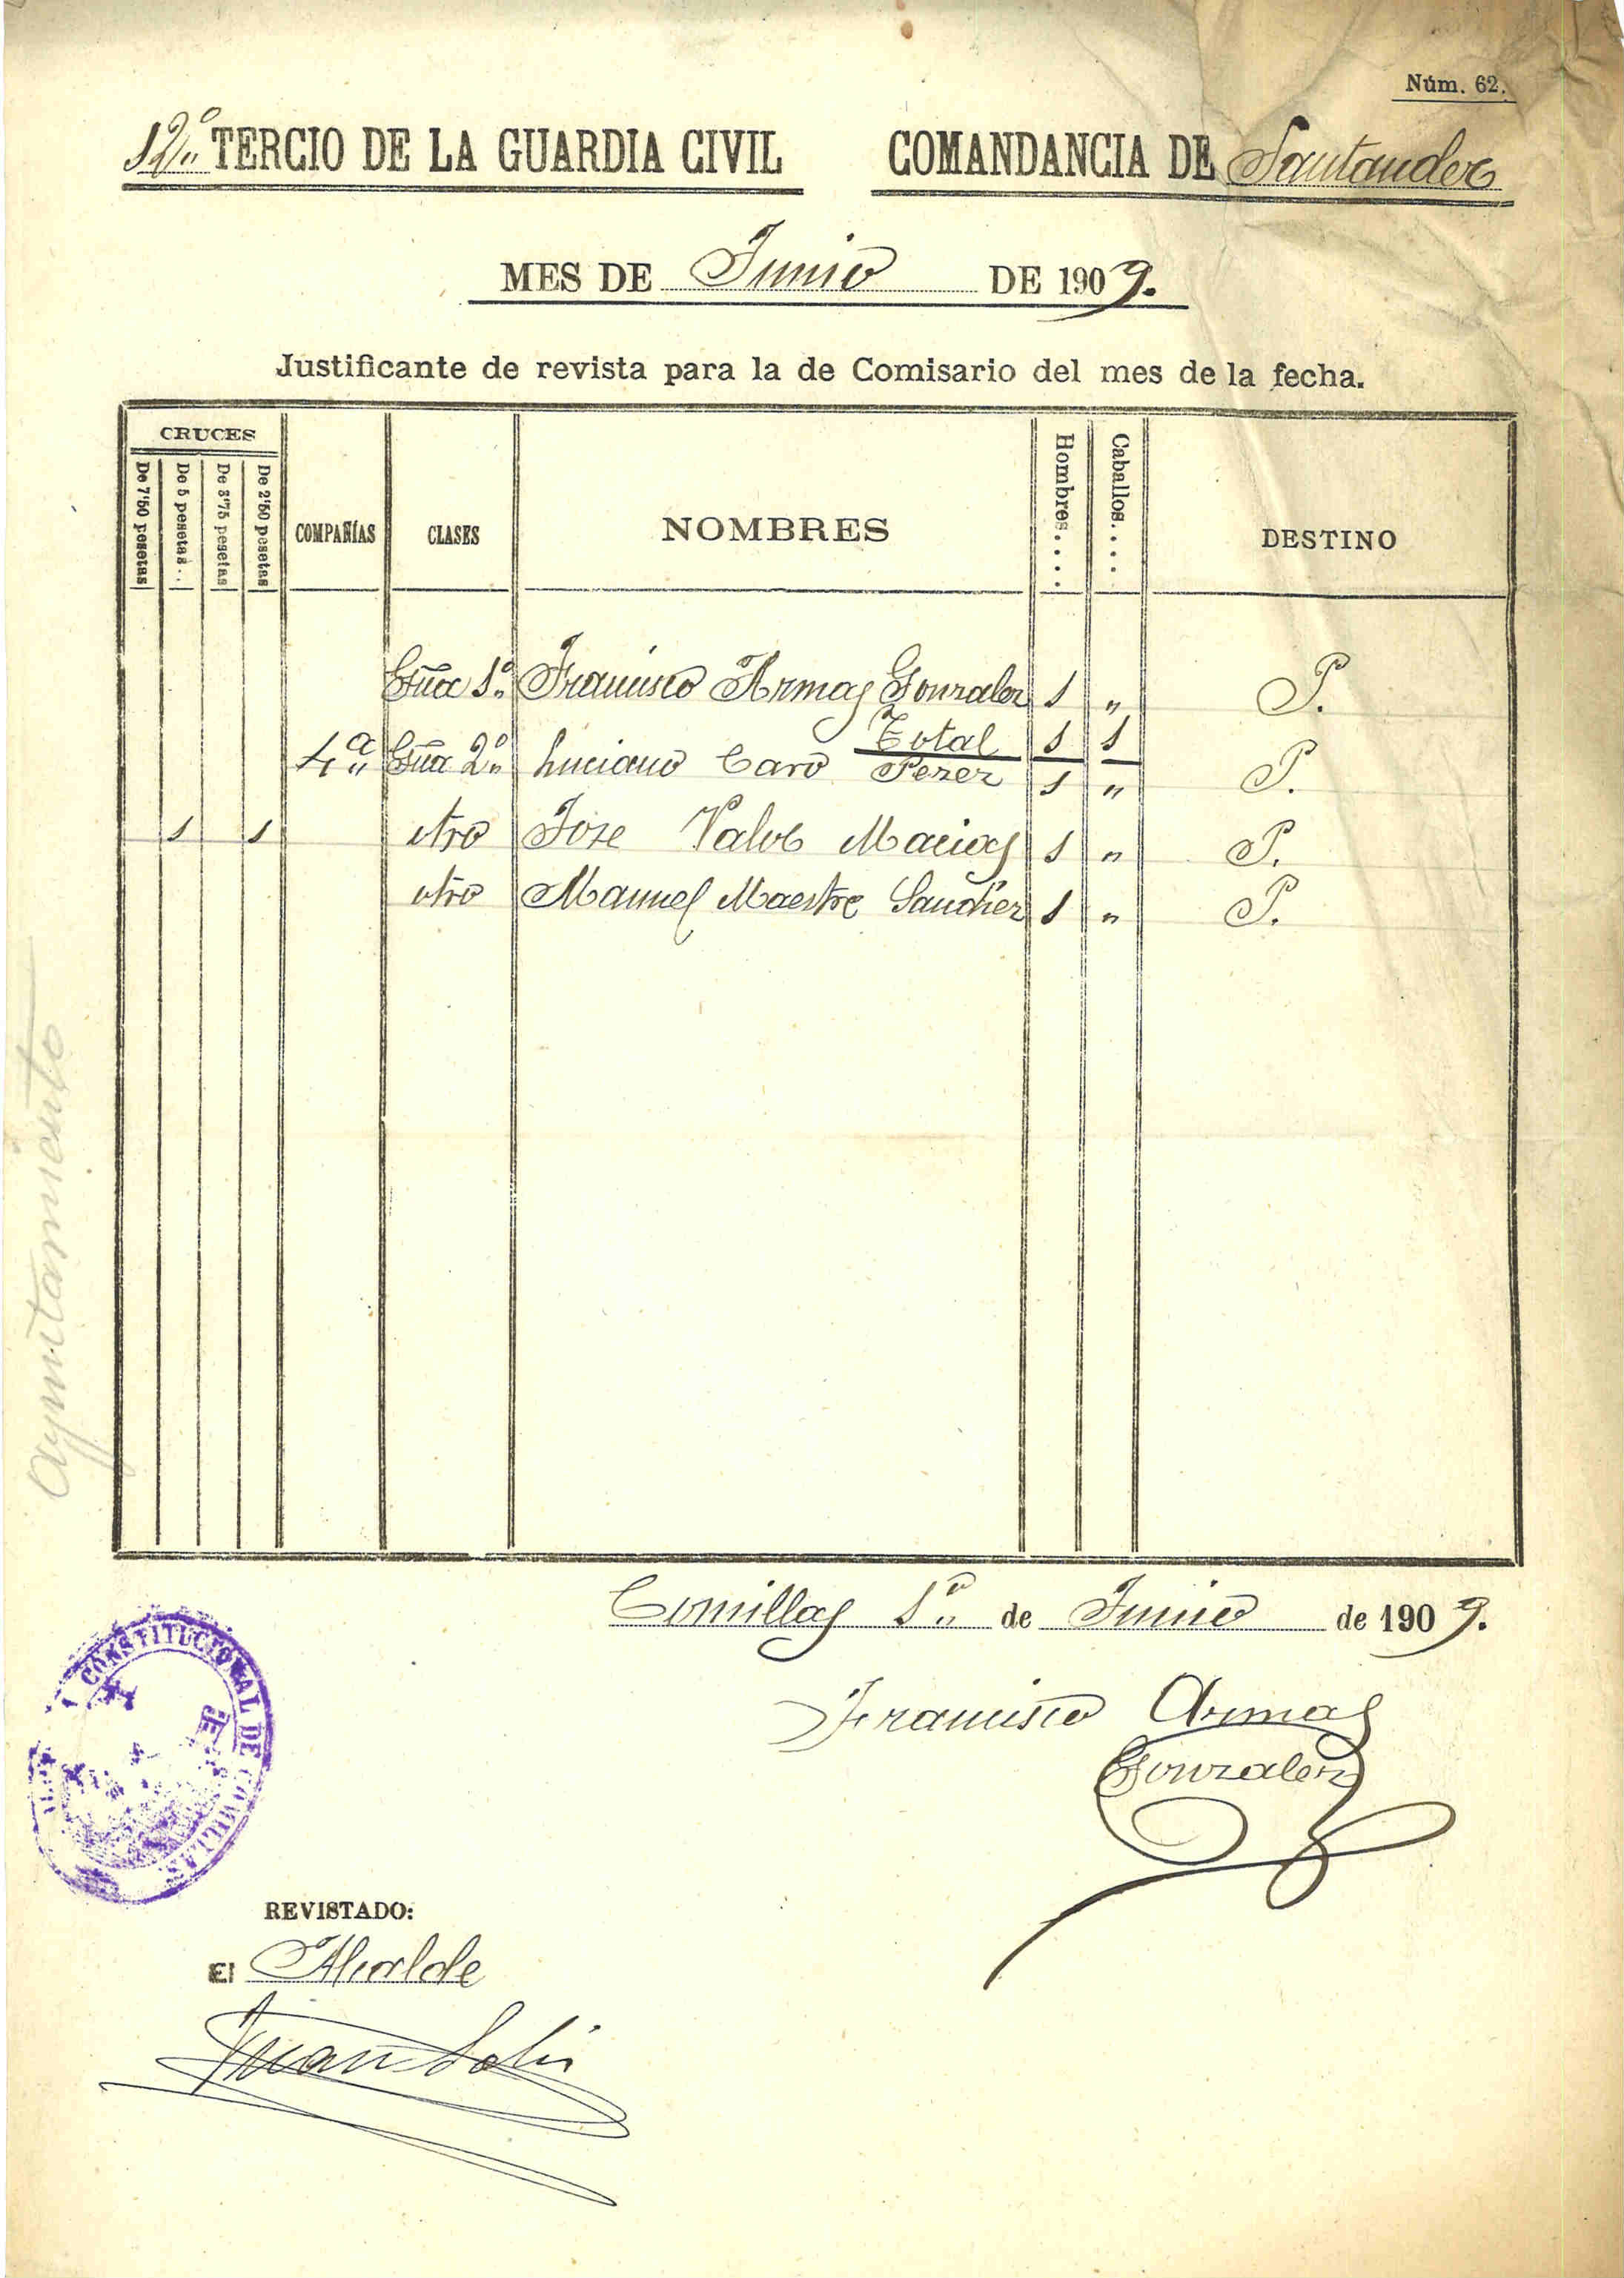 Núm. 62.
12º TERCIO DE LA GUARDIA CIVIL COMANDANCIA DE Santander
MES DE Junio DE 1909.
Justificante de revista para la de Comisario del mes de la fecha.
CRUCES
De 7'50 pesetas
De 5 pesetas..
De 3'75 pesetas
De 2'50 pesetas
COMPAÑÍAS
CLASES
NOMBRES
Hombres....
Caballos....
DESTINO
Gua 1º Francisco Armas Gonzalez 1 " P.
Total 1 1
4ª Gua 2º Luciano Caro Perez 1 " P.
1 1 otro Jose Valve Macias 1 " P.
otro Manuel Maestre Sanchez 1 " P.
Ayuntamiento
Comillas 1º de Junio de 1909.
Francisco Armas
Gonzalez
CONSTITUCIONAL DE COMILLAS
REVISTADO:
El Alcalde
Juan